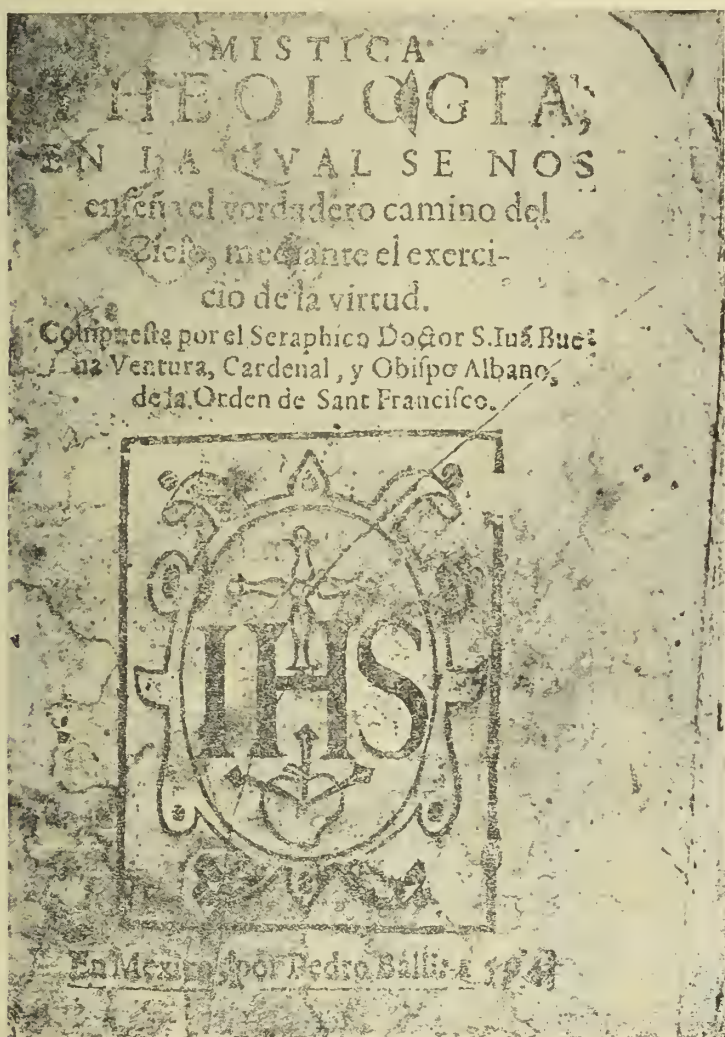 MISTICA
THEOLOGIA,
EN LA QVAL SE NOS
enſeña el verdadero camino del
Cielo, mediante el exerci-
cio de la virtud.
Compueſta por el Seraphico Doctor S. Iuã Bue-
na Ventura, Cardenal, y Obiſpo Albano,
de la Orden de Sant Franciſco.
IHS
En Mexico, por Pedro Balli.